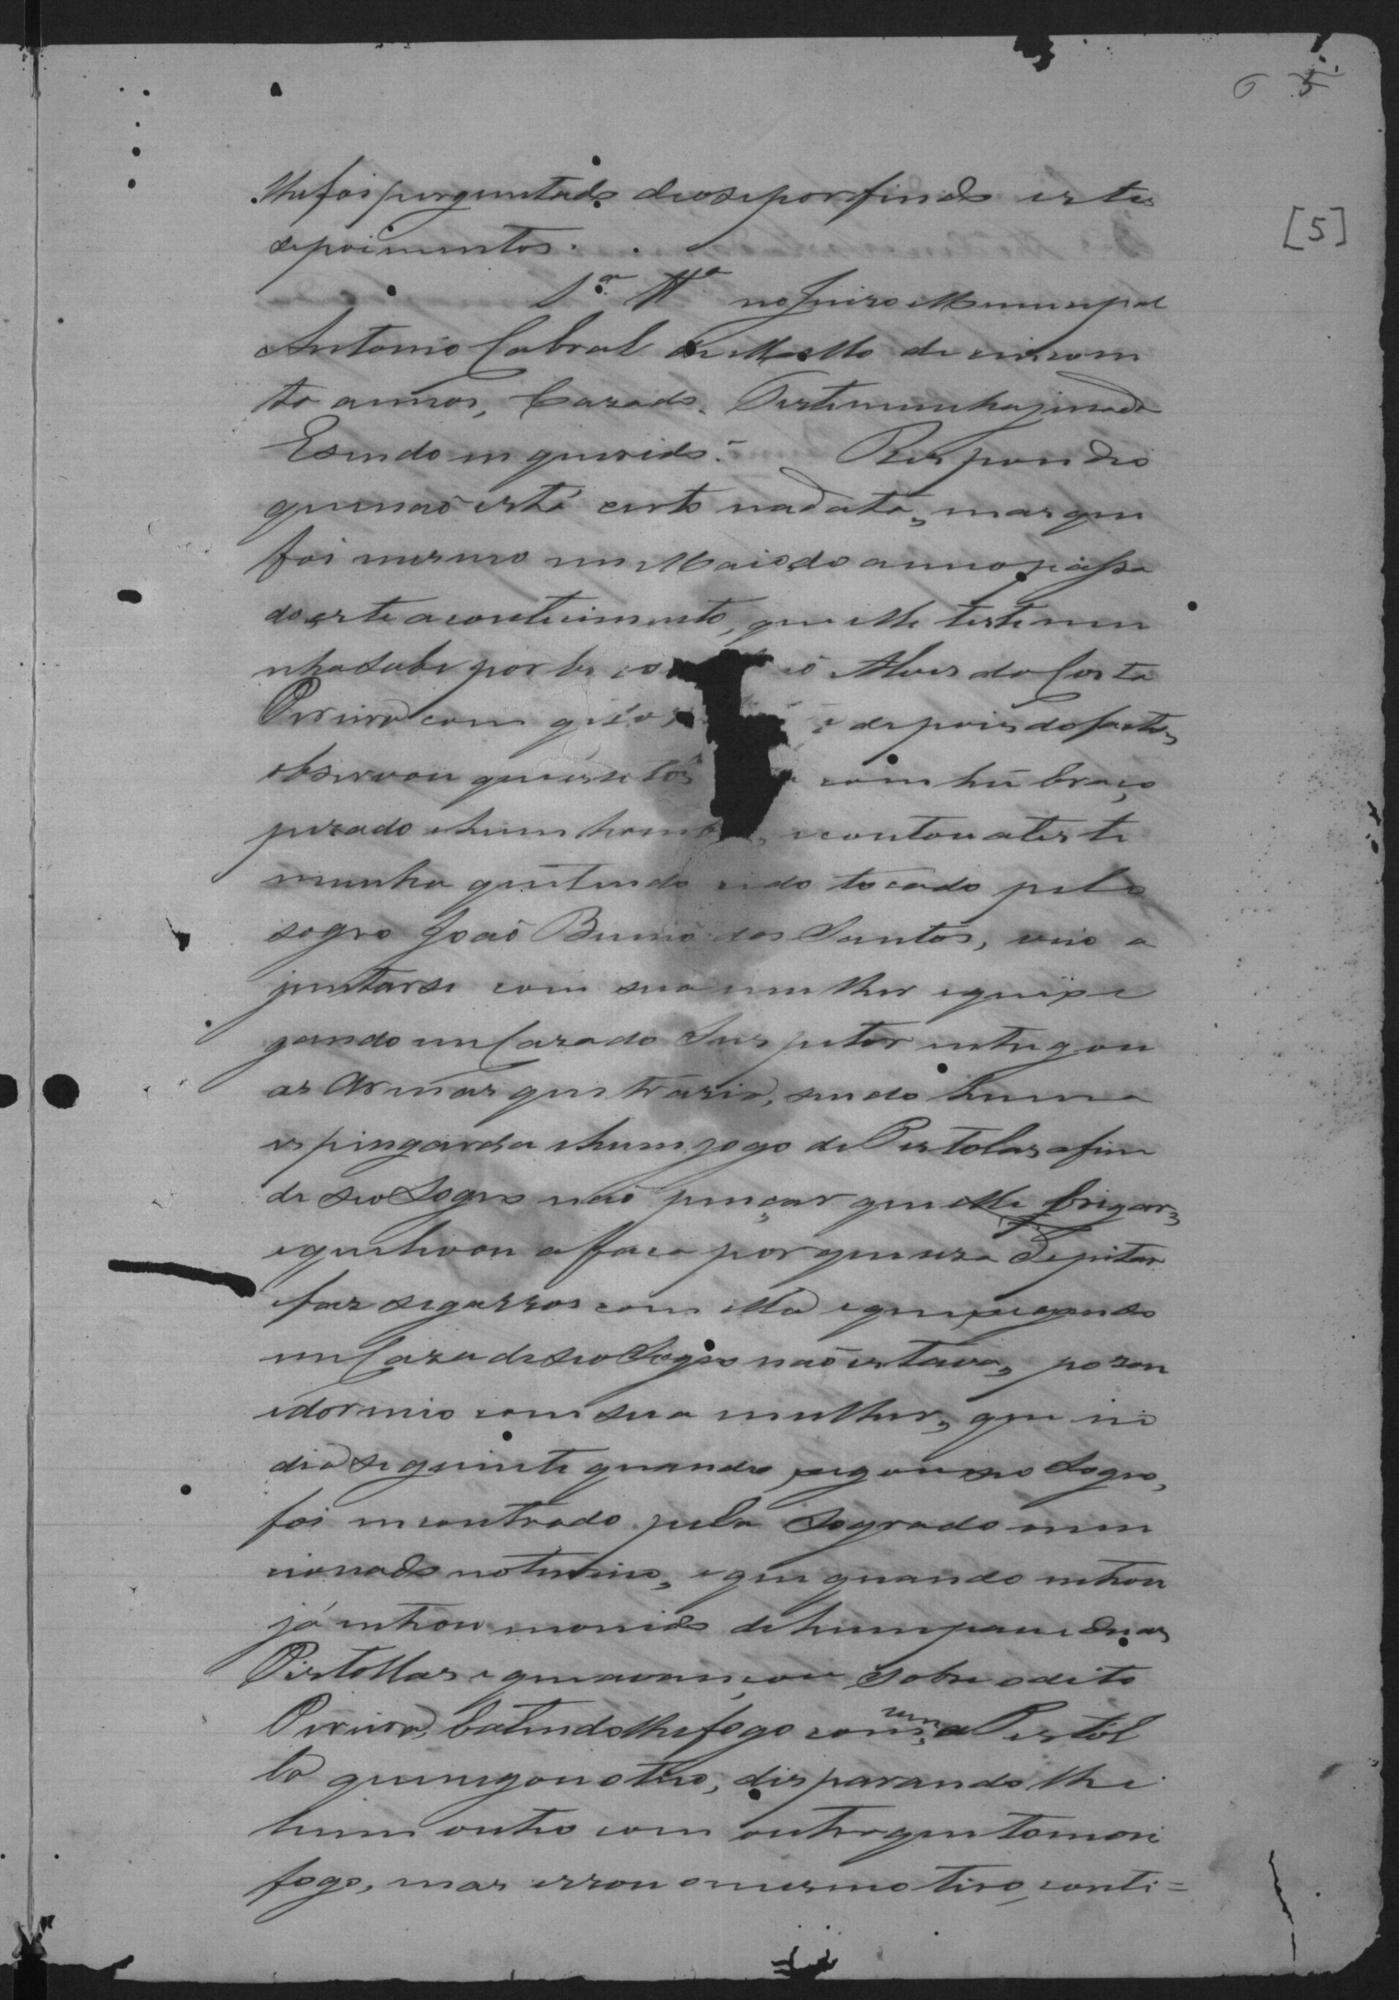 6 5
[5]
lhe foi perguntado deose por findo estes
depoimentos.
1ª Tª no Juizo Municipal
Antonio Cabral de Mello de sincoen
ta annos, Cazado. Testemunha jurada
E sendo inquerido. Respondeo
que naõ está certo na data, mas que
foi mesmo em Maio do anno passa
do este acontecimento, que elle testemu
nha sabe por Alves da Costa
Pereira com depois do facto,
observou que este com hũ braço
pizado e hum hom e contou a teste
munha que tendo sido tocado pelo
sogro Joaõ Bueno dos Santos, veio a
juntarse com sua mulher e que xe
gando em Caza do Inspetor entregou
as Armas que trazia, sendo huma
espingarda e hum jogo de Pistolas afim
de seo Sogro naõ pençar que elle brigar,
e que livou a faca por que uza de pitar
e faz segarros com ella e que xegando
em Caza de seo Sogro naõ estava, pozou
e dormio com sua mulher, que no
dia seguinte quando xegou seo Sogro,
foi encontrado pela Sogra do men
cionado no terreiro, e que quando entrou
já entrou monido de hum pau e duas
Pistollas e que avançou sobre o dito
Pereira, batendolhe fogo com uma Pistol
la que negou o tiro, disparandolhe
hum outro com outra que tomou
fogo, mas errou o mesmo tiro, conti=